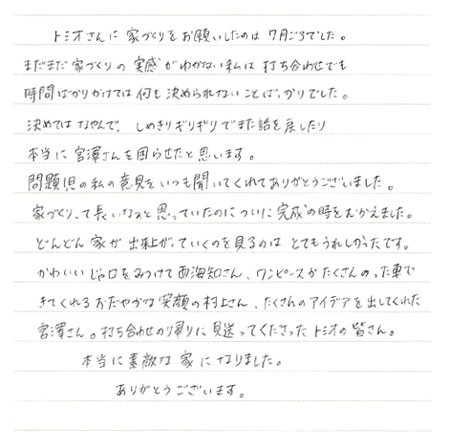 トミオさんに家づくりをお願いしたのは7月ごろでした。
まだまだ家づくりの実感がわかない私は打ち合わせでも
時間ばかりかけては何も決められないことばっかりでした。
決めてはなやんで、しめきりギリギリでまた話を戻したり
本当に宮澤さんを困らせたと思います。
問題児の私の意見をいつも聞いてくれてありがとうございました。
家づくりって長いなぁと思っていたのについに完成の時をむかえました。
どんどん家が出来上がっていくのを見るのはとてもうれしかったです。
かわいいじゃ口をみつけて西海知さん、ワンピースがたくさんのった車で
きてくれるおだやかな笑顔の村上さん、たくさんのアイデアを出してくれた
宮澤さん。打ち合わせのり帰りに見送ってくださったトミオの皆さん。
本当に素敵な家になりました。
ありがとうございます。